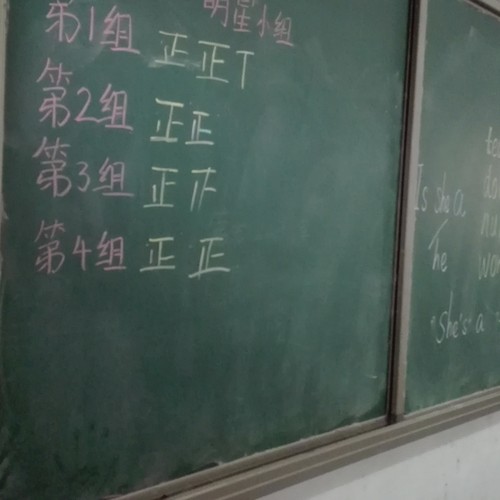 明星小组
第1组 正正丅
第2组 正正
第3组 正下
第4组 正正
Is she a
he
she's a